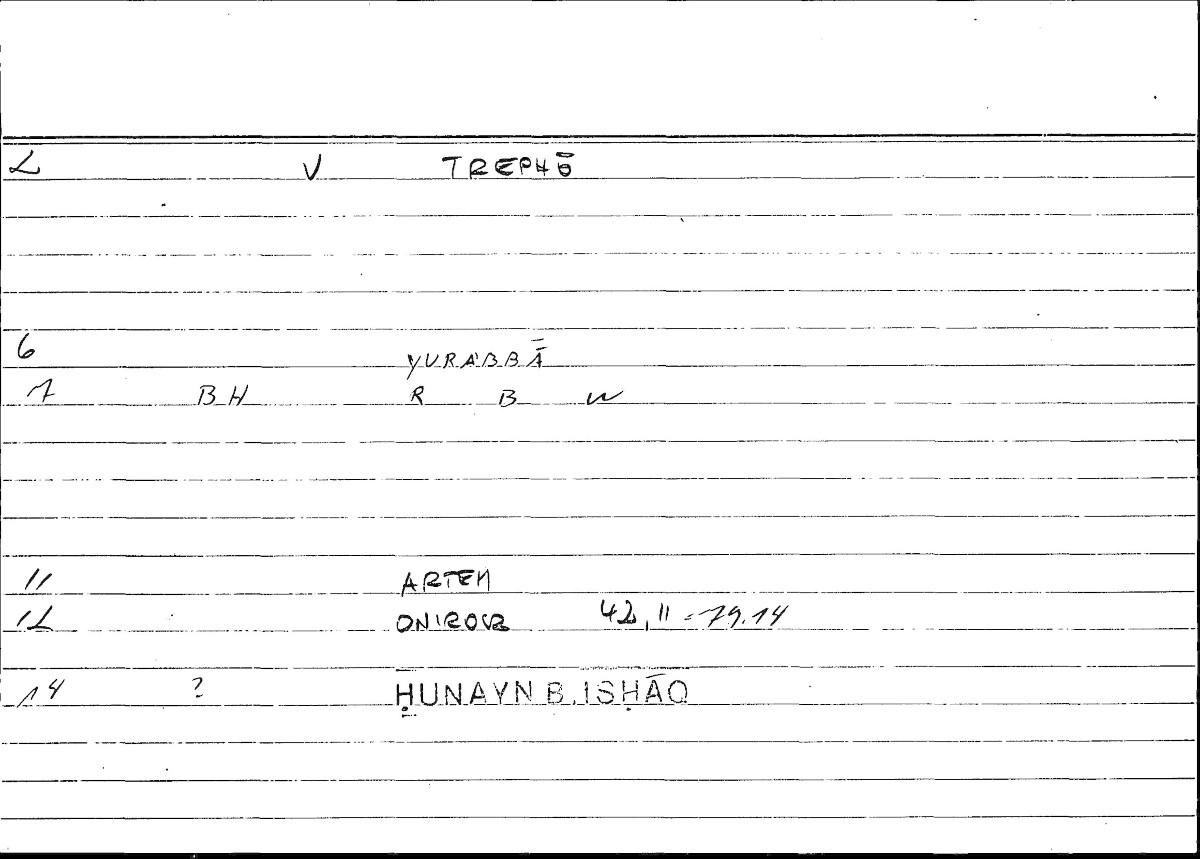 2 V TREPHŌ
6 YURABBĀ
7 BH R B W
11 ARTEM
12 ONIROCR 42,11 = 79.14
14 ? ḤUNAYN B. ISḤĀQ